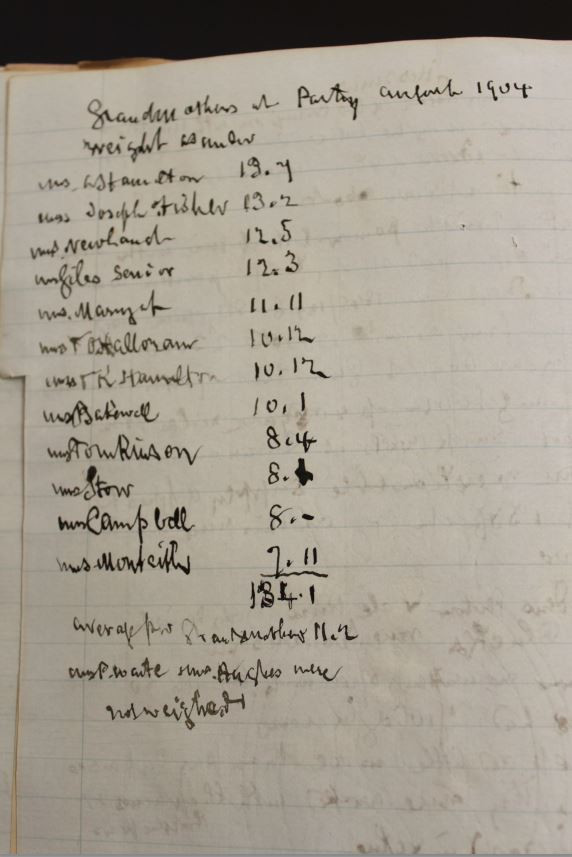 Grandmothers at Party august 1904
weight as under
mrs. A Hamilton 13.7
mrs Joseph Fisher 13.2
mrs. Newland 12.5
mrs Giles Senior 12.3
mrs. 11.11
mrs T O'Halloran 10.12
mrs T K Hamilton 10.12
mrs Bakewell 10.1
mrs Tomkinson 8.4
mrs Stow 8.
mrs Campbell 8.-
mrs Monteith 7.11
134.1
average per Grandmother 11.2
mrs Hughes were
not weighed